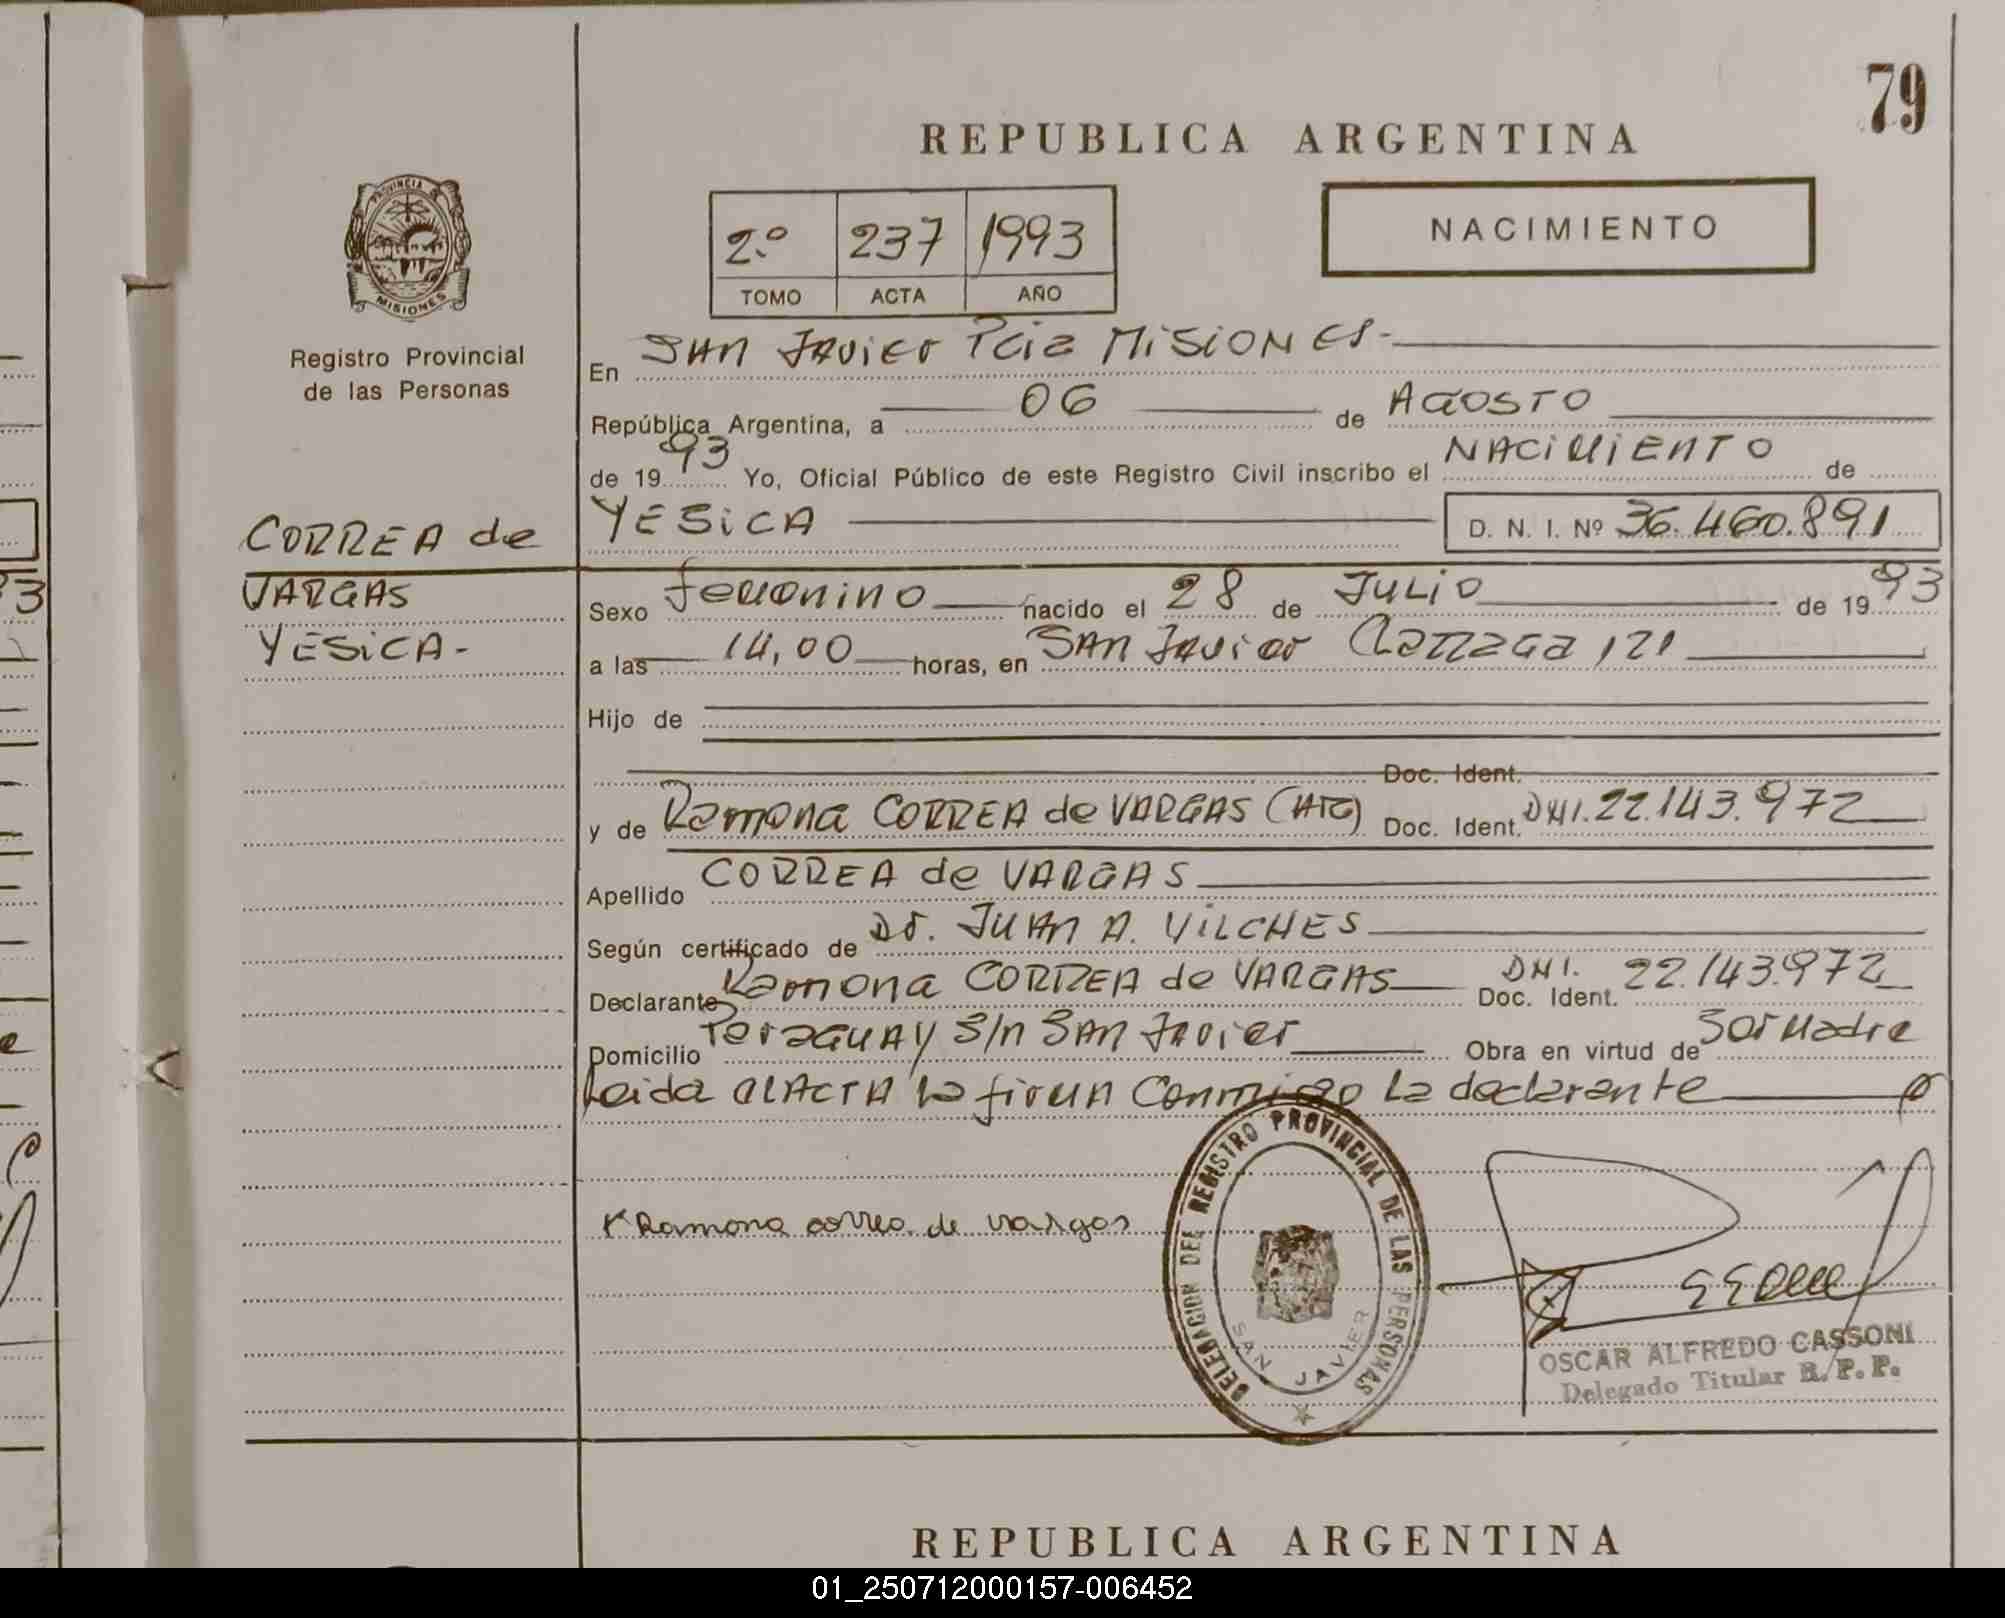 79
REPUBLICA ARGENTINA
2.º 237 1993
TOMO ACTA AÑO
NACIMIENTO
PROVINCIA DE MISIONES
Registro Provincial
de las Personas
En SAN JAVIER Pcia MISIONES.-
República Argentina, a 06 de AGOSTO
de 1993 Yo, Oficial Público de este Registro Civil inscribo el NACIMIENTO de
YESICA D. N. I. Nº 36.460.891
CORREA de
VARGAS
YESICA.-
Sexo femenino nacido el 28 de JULIO de 1993
a las 14,00 horas, en SAN JAVIER 121
Hijo de
Doc. Ident.
y de Ramona CORREA de VARGAS Doc. Ident. DNI. 22.143.972
Apellido CORREA de VARGAS
Según certificado de Dr. JUAN A. VILCHES
Declarante Ramona CORREA de VARGAS Doc. Ident. DNI. 22.143.972
Domicilio Paraguay S/n SAN JAVIER Obra en virtud de Ser Madre
Leida el ACTA la firma Conmigo La declarante
Ramona correa de vargas
DELEGACION DEL REGISTRO PROVINCIAL DE LAS PERSONAS
SAN JAVIER
OSCAR ALFREDO CASSONI
Delegado Titular R. P. P.
REPUBLICA ARGENTINA
01_250712000157-006452